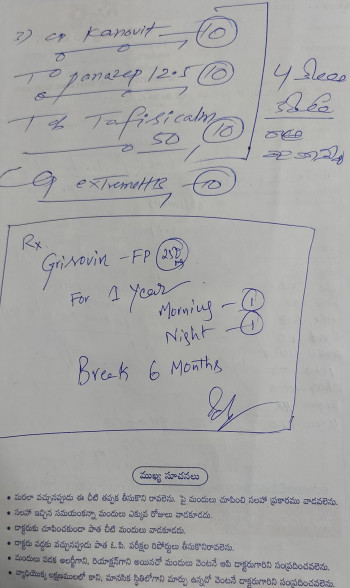 3) cap Kanovit - 10
T panazep 12.5 10
T Tafisicalm
50 10
Cap extremeHB - 10
Rx
Grisovin - FP 250
For 1 Year
Morning - 1
Night - 1
Break 6 Months
ముఖ్య సూచనలు
• మరలా వచ్చునప్పుడు ఈ చీటి తప్పక తీసుకొని రావలెను. పై మందులు చూపించి సలహా ప్రకారము వాడవలెను.
• సలహా ఇచ్చిన సమయంకన్నా మందులు ఎక్కువ రోజులు వాడకూడదు.
• డాక్టరుకు చూపించకుండా పాత చీటీ మందులు వాడకూడదు.
• డాక్టరు వద్దకు వచ్చునప్పుడు పాత ఓ.పి. పరీక్షల రిపోర్టులు తీసుకొనిరావలెను.
• మందులు వడక అలర్జీగాని, రియాక్షన్‌గాని అయినచో మందులు వెంటనే ఆపి డాక్టరుగారిని సంప్రదించవలెను.
• వ్యాధియొక్క లక్షణములలో కాని, మానసిక స్థితిలోగాని మార్పు ఉన్నచో వెంటనే డాక్టరుగారిని సంప్రదించవలెను.